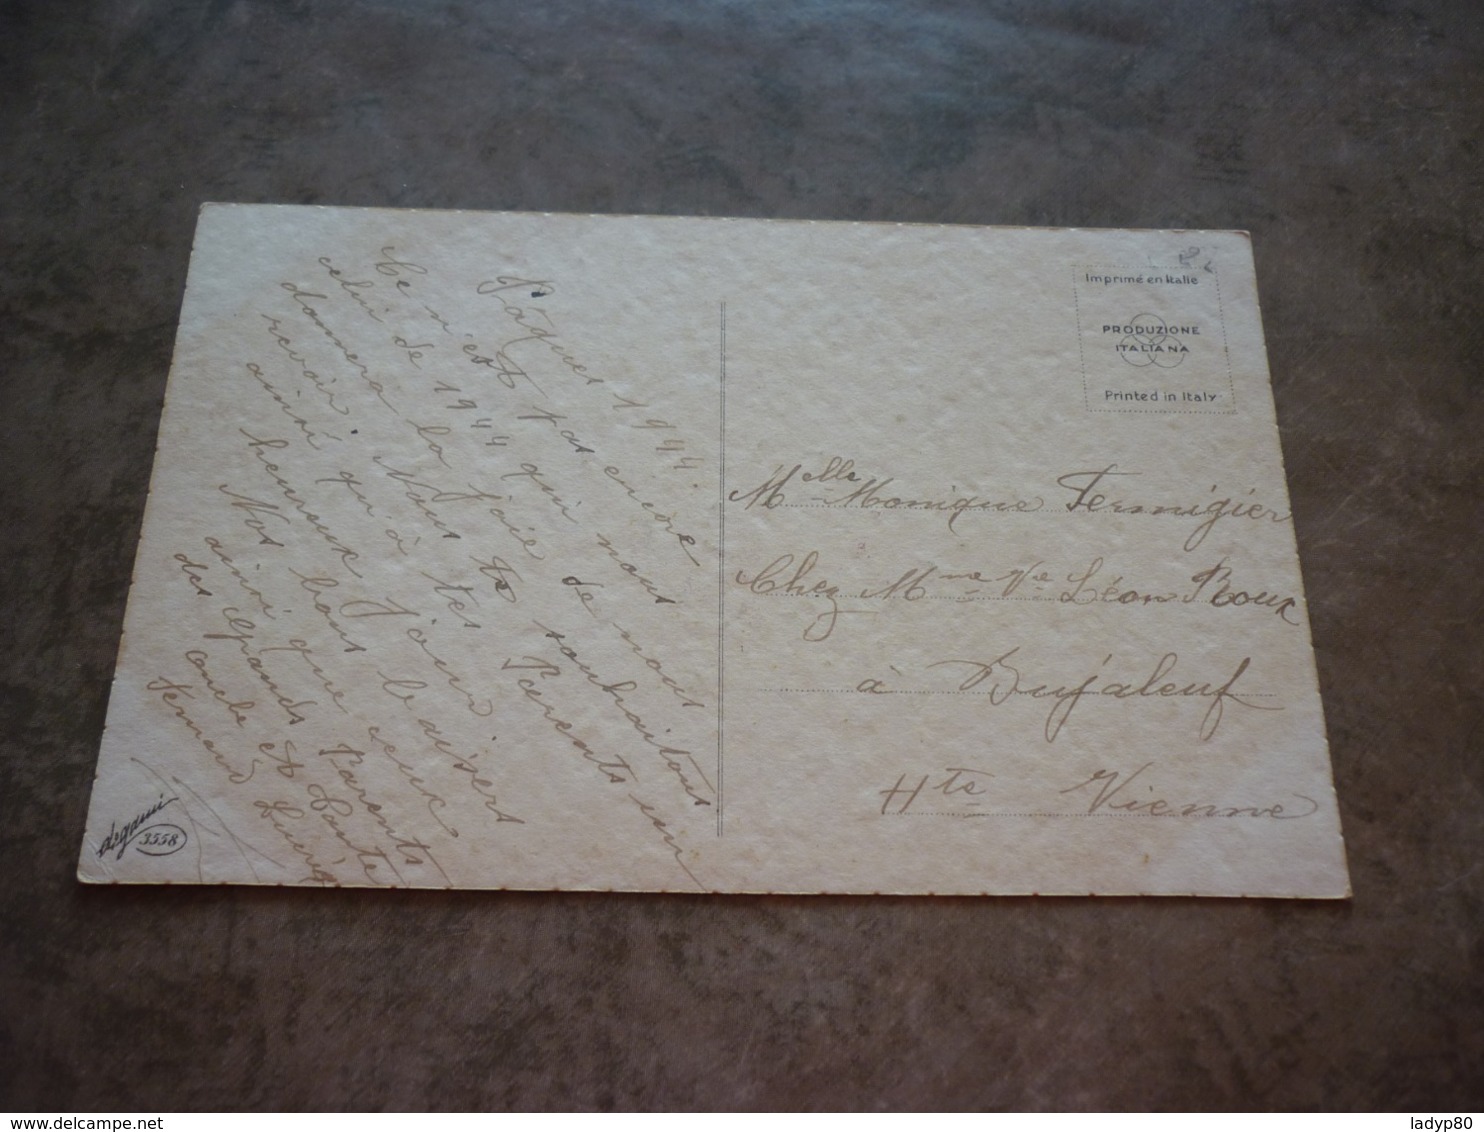 Pâques 1944.
Ce n'est pas encore
celui de 1944 qui nous
donnera la joie de nous
revoir. Nous te souhaitons
ainsi qu'à tes Parents un
heureux jour.
Nos bons baisers
ainsi que ceux
des Grands Parents
oncle et Tante
Fernand
Imprimé en Italie
PRODUZIONE
ITALIANA
Printed in Italy
Melle Monique Fermigier
Chez Mme Vve Léon Roux
à Bujaleuf
Hte Vienne
degami
3558
delcampe.net
ladyp80